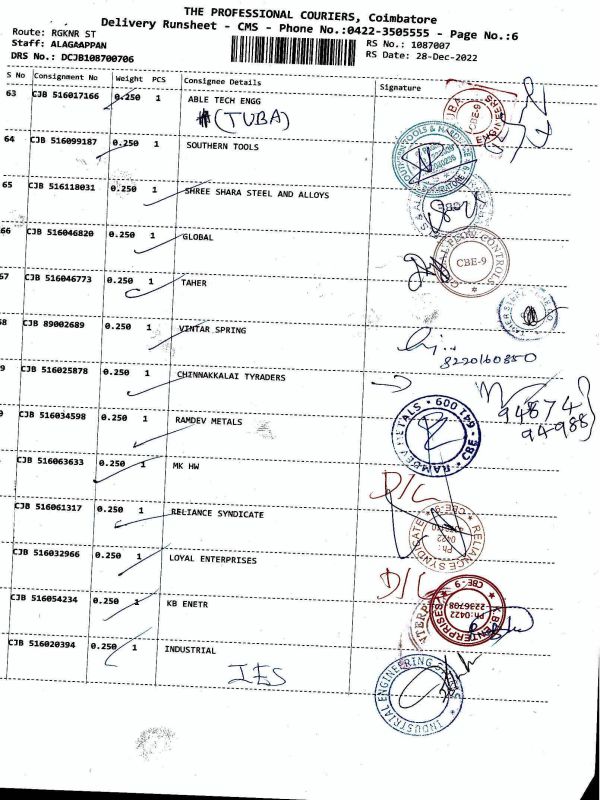 THE PROFESSIONAL COURIERS, Coimbatore
Delivery Runsheet - CMS - Phone No.:0422-3505555 - Page No.:6
Route: RGKNR ST
Staff: ALAGAAPPAN RS No.: 1087007
DRS No.: DCJB108700706 RS Date: 28-Dec-2022
S No Consignment No Weight PCS Consignee Details Signature
63 CJB 516017166 0.250 1 ABLE TECH ENGG
(TUBA)
CBE-9
64 CJB 516099187 0.250 1 SOUTHERN TOOLS
65 CJB 516118031 0.250 1 SHREE SHARA STEEL AND ALLOYS
66 CJB 516046820 0.250 1 GLOBAL
CBE-9
67 CJB 516046773 0.250 1 TAHER
68 CJB 89002689 0.250 1 VINTAR SPRING
8220160850
9 CJB 516025878 0.250 1 CHINNAKKALAI TYRADERS
94874
94-988
CJB 516034598 0.250 1 RAMDEV METALS
RAMDEV METALS CBE - 641 009
CJB 516063633 0.250 1 MK HW
D/L
CJB 516061317 0.250 1 RELIANCE SYNDICATE
RELIANCE SYNDICATE CBE-9
Ph 0422
CJB 516032966 0.250 1 LOYAL ENTERPRISES
D/L
CJB 516054234 0.250 1 KB ENETR
K.B. ENTERPRISES CBE - 9
PH:0422 2236708
CJB 516020394 0.250 1 INDUSTRIAL
IES
INDUSTRIAL ENGINEERING